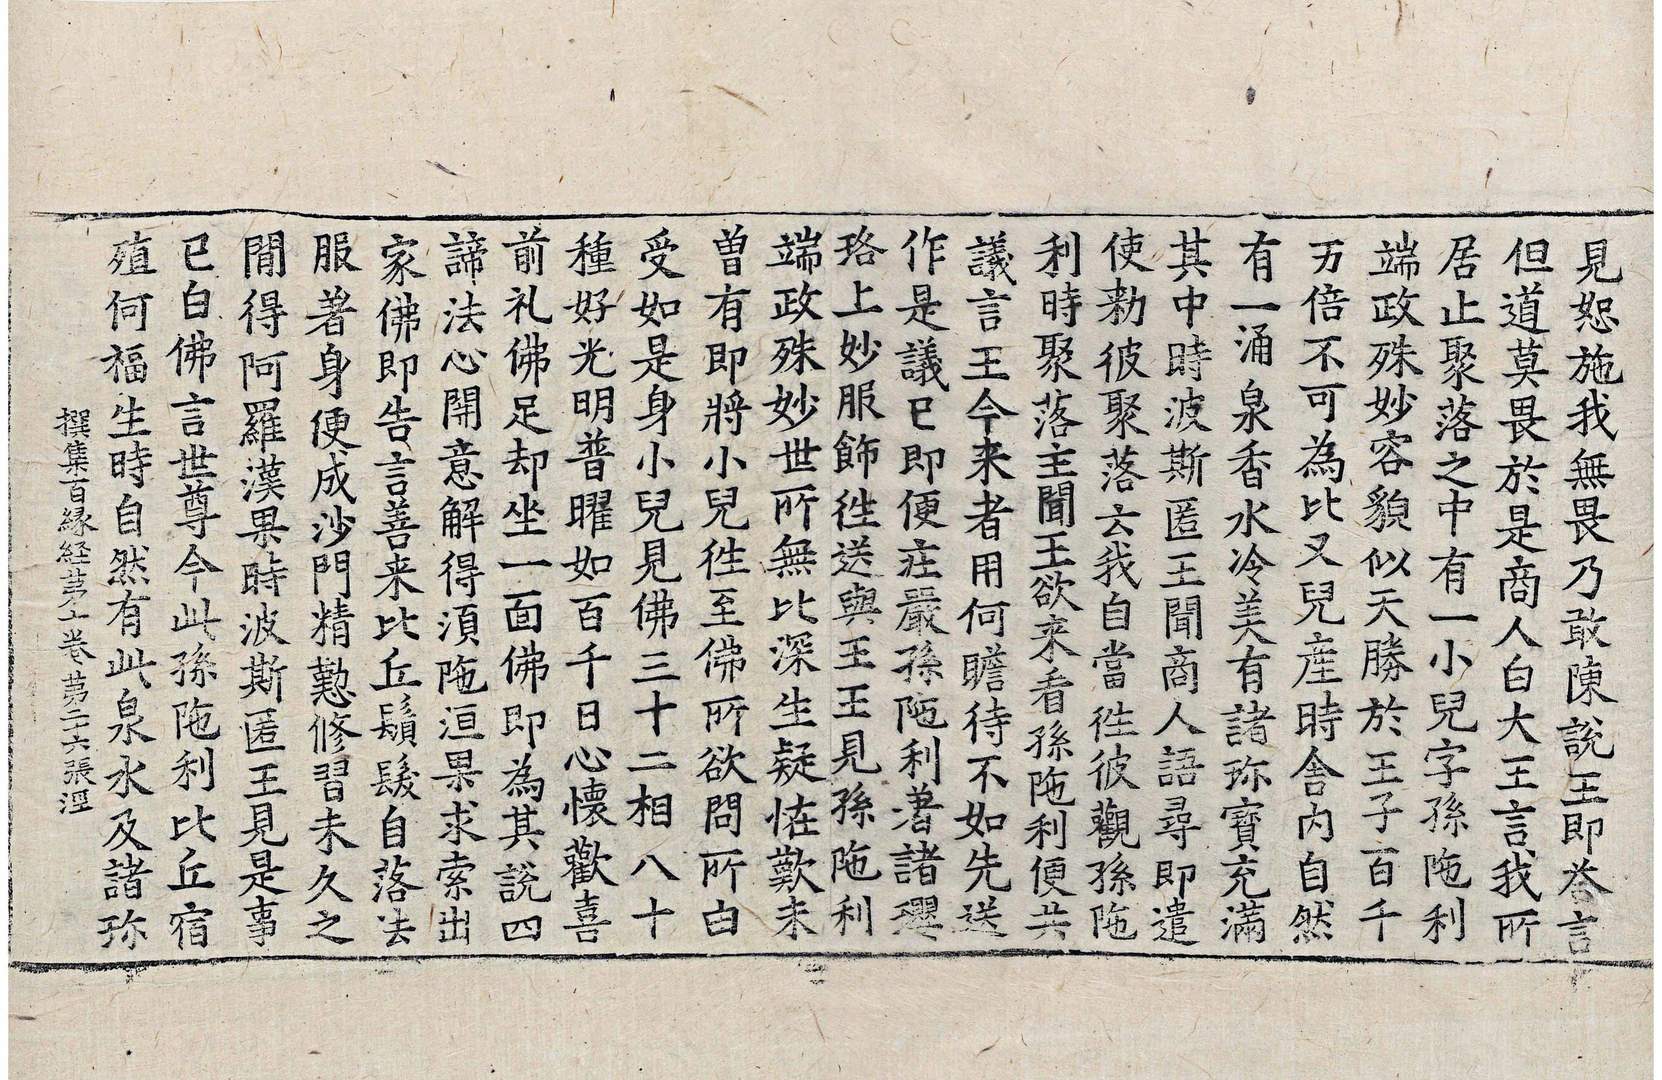 見恕施我無畏乃敢陳說王即荅言
但道莫畏於是商人白大王言我所
居止聚落之中有一小兒字孫陁利
端政殊妙容貌似天勝於王子百千
万倍不可為比又兒產時舍内自然
有一涌泉香水冷美有諸珎寶充滿
其中時波斯匿王聞商人語尋即遣
使勑彼聚落云我自當徃彼觀孫陁
利時聚落主聞王欲来看孫陁利便共
議言王今来者用何瞻待不如先送
作是議已即便庄嚴孫陁利著諸瓔
珞上妙服飾徃送與王王見孫陁利
端政殊妙世所無比深生疑恠歎未
曽有即將小兒徃至佛所欲問所白
受如是身小兒見佛三十二相八十
種好光明普曜如百千日心懷歡喜
前礼佛足却坐一面佛即為其說四
諦法心開意解得湏陁洹果求索出
家佛即告言善来比丘鬚髮自落法
服著身便成沙門精懃修習未久之
閒得阿羅漢果時波斯匿王見是事
已白佛言世尊今此孫陁利比丘宿
殖何福生時自然有此泉水及諸珎
撰集百縁経苐九卷 苐二六張 涇